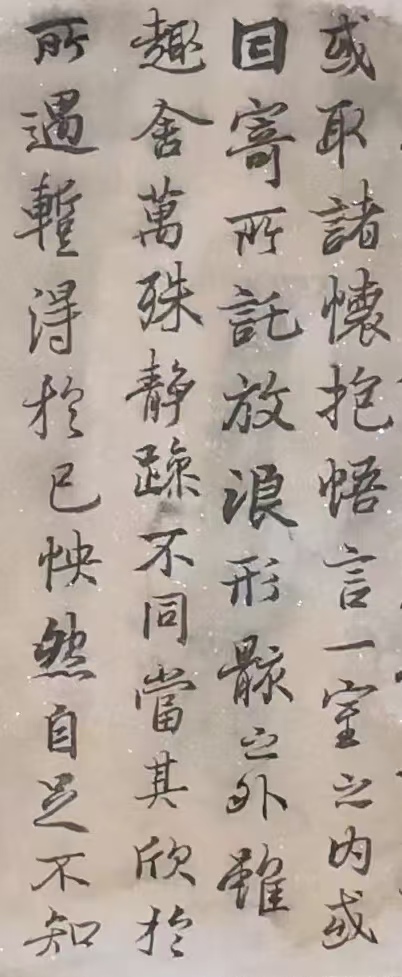 或取諸懷抱悟言一室之内或
因寄所託放浪形骸之外雖
趣舍萬殊静躁不同當其欣於
所遇蹔得於己怏然自足不知